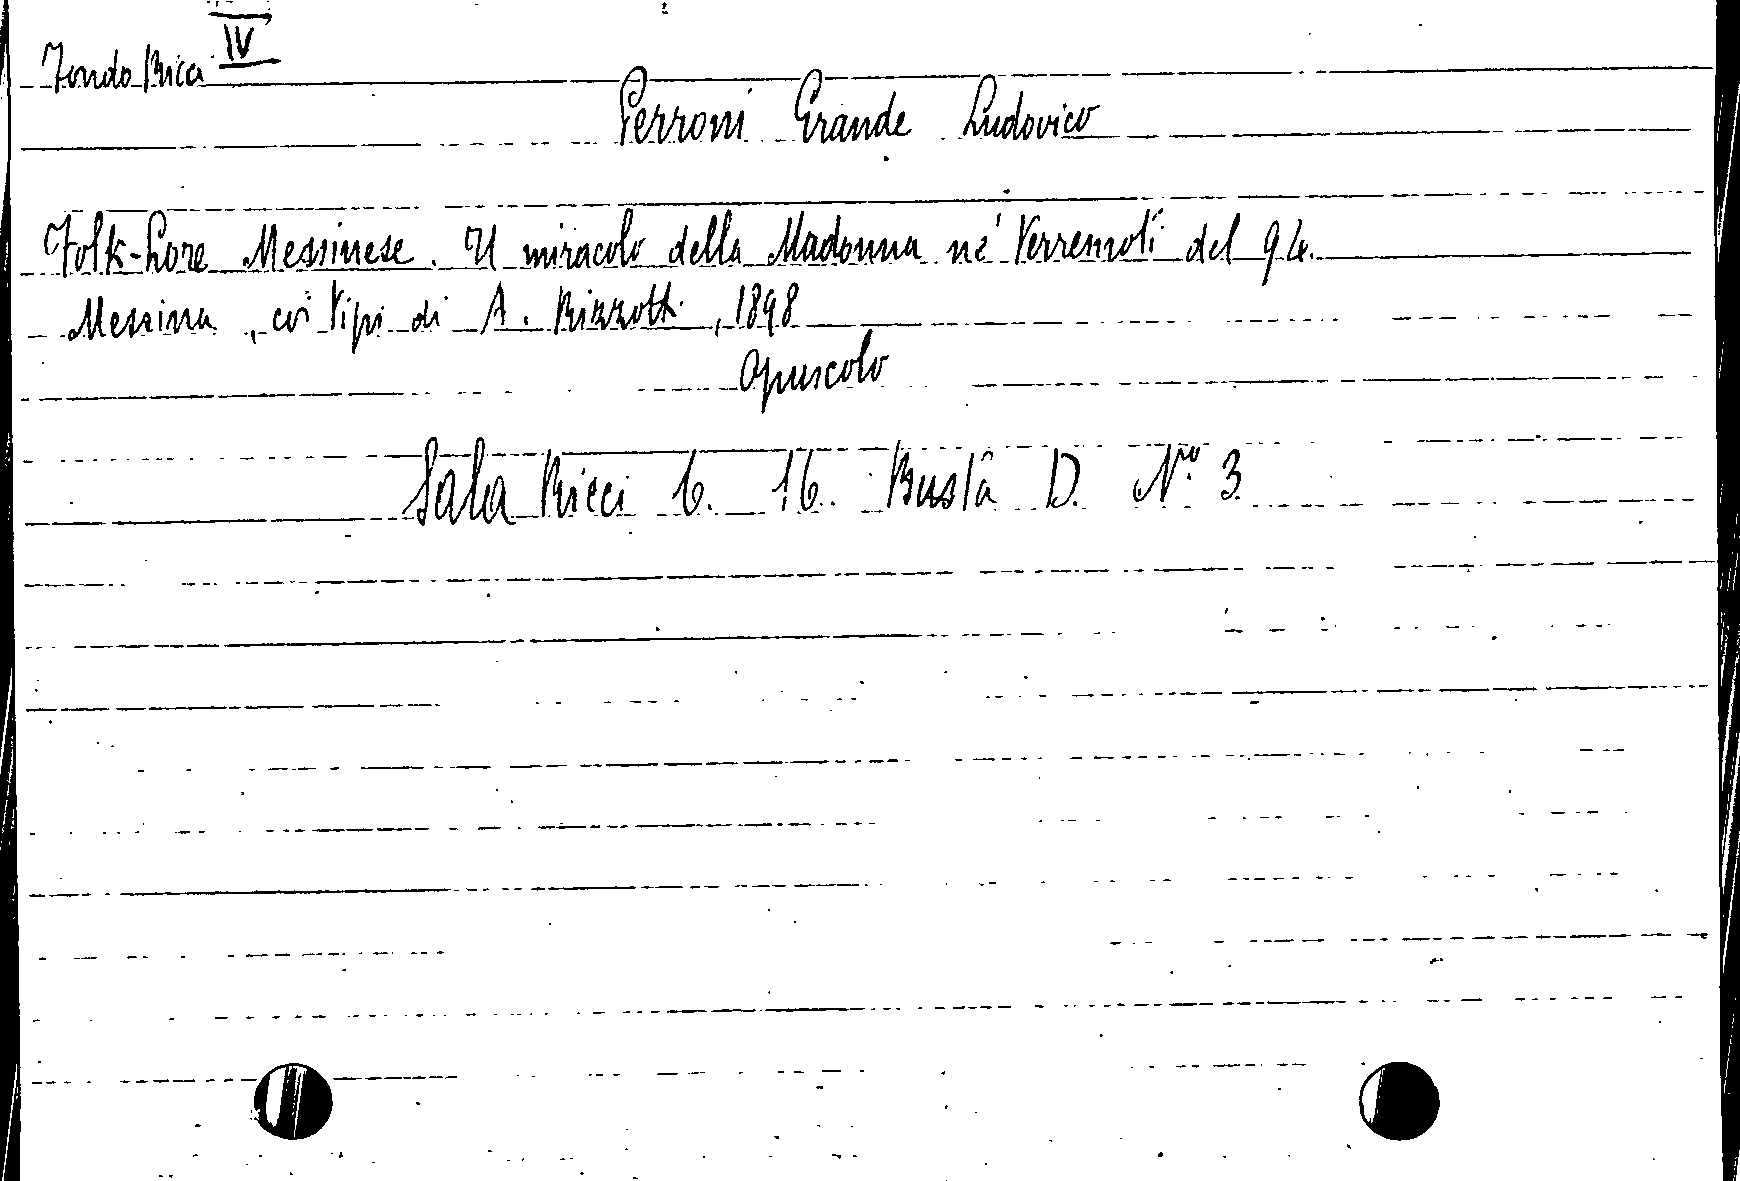 IV
Fondo Ricci
Perroni Grande Ludovico
Folk-Lore Messinese. Un miracolo della Madonna ne' Terremoti del 94.
Messina, coi Tipi di A. Rizzotti, 1898
Opuscolo
Sala Ricci 6. 16. Busta D. No. 3